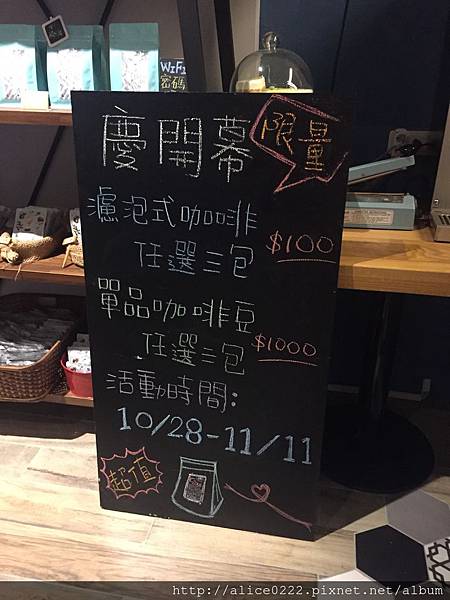 WIFI
密碼
慶開幕
限量
濾泡式咖啡
任選三包 $100
單品咖啡豆
任選三包 $1000
活動時間:
10/28-11/11
超值
http://alice0222.pixnet.net/album